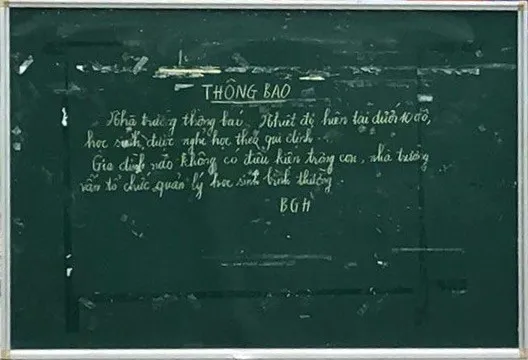 THÔNG BÁO
Nhà trường thông báo. Nhiệt độ hiện tại dưới 10 độ,
học sinh được nghỉ học theo qui định.
Gia đình nào không có điều kiện trông con, nhà trường
vẫn tổ chức quản lý học sinh bình thường
BGH